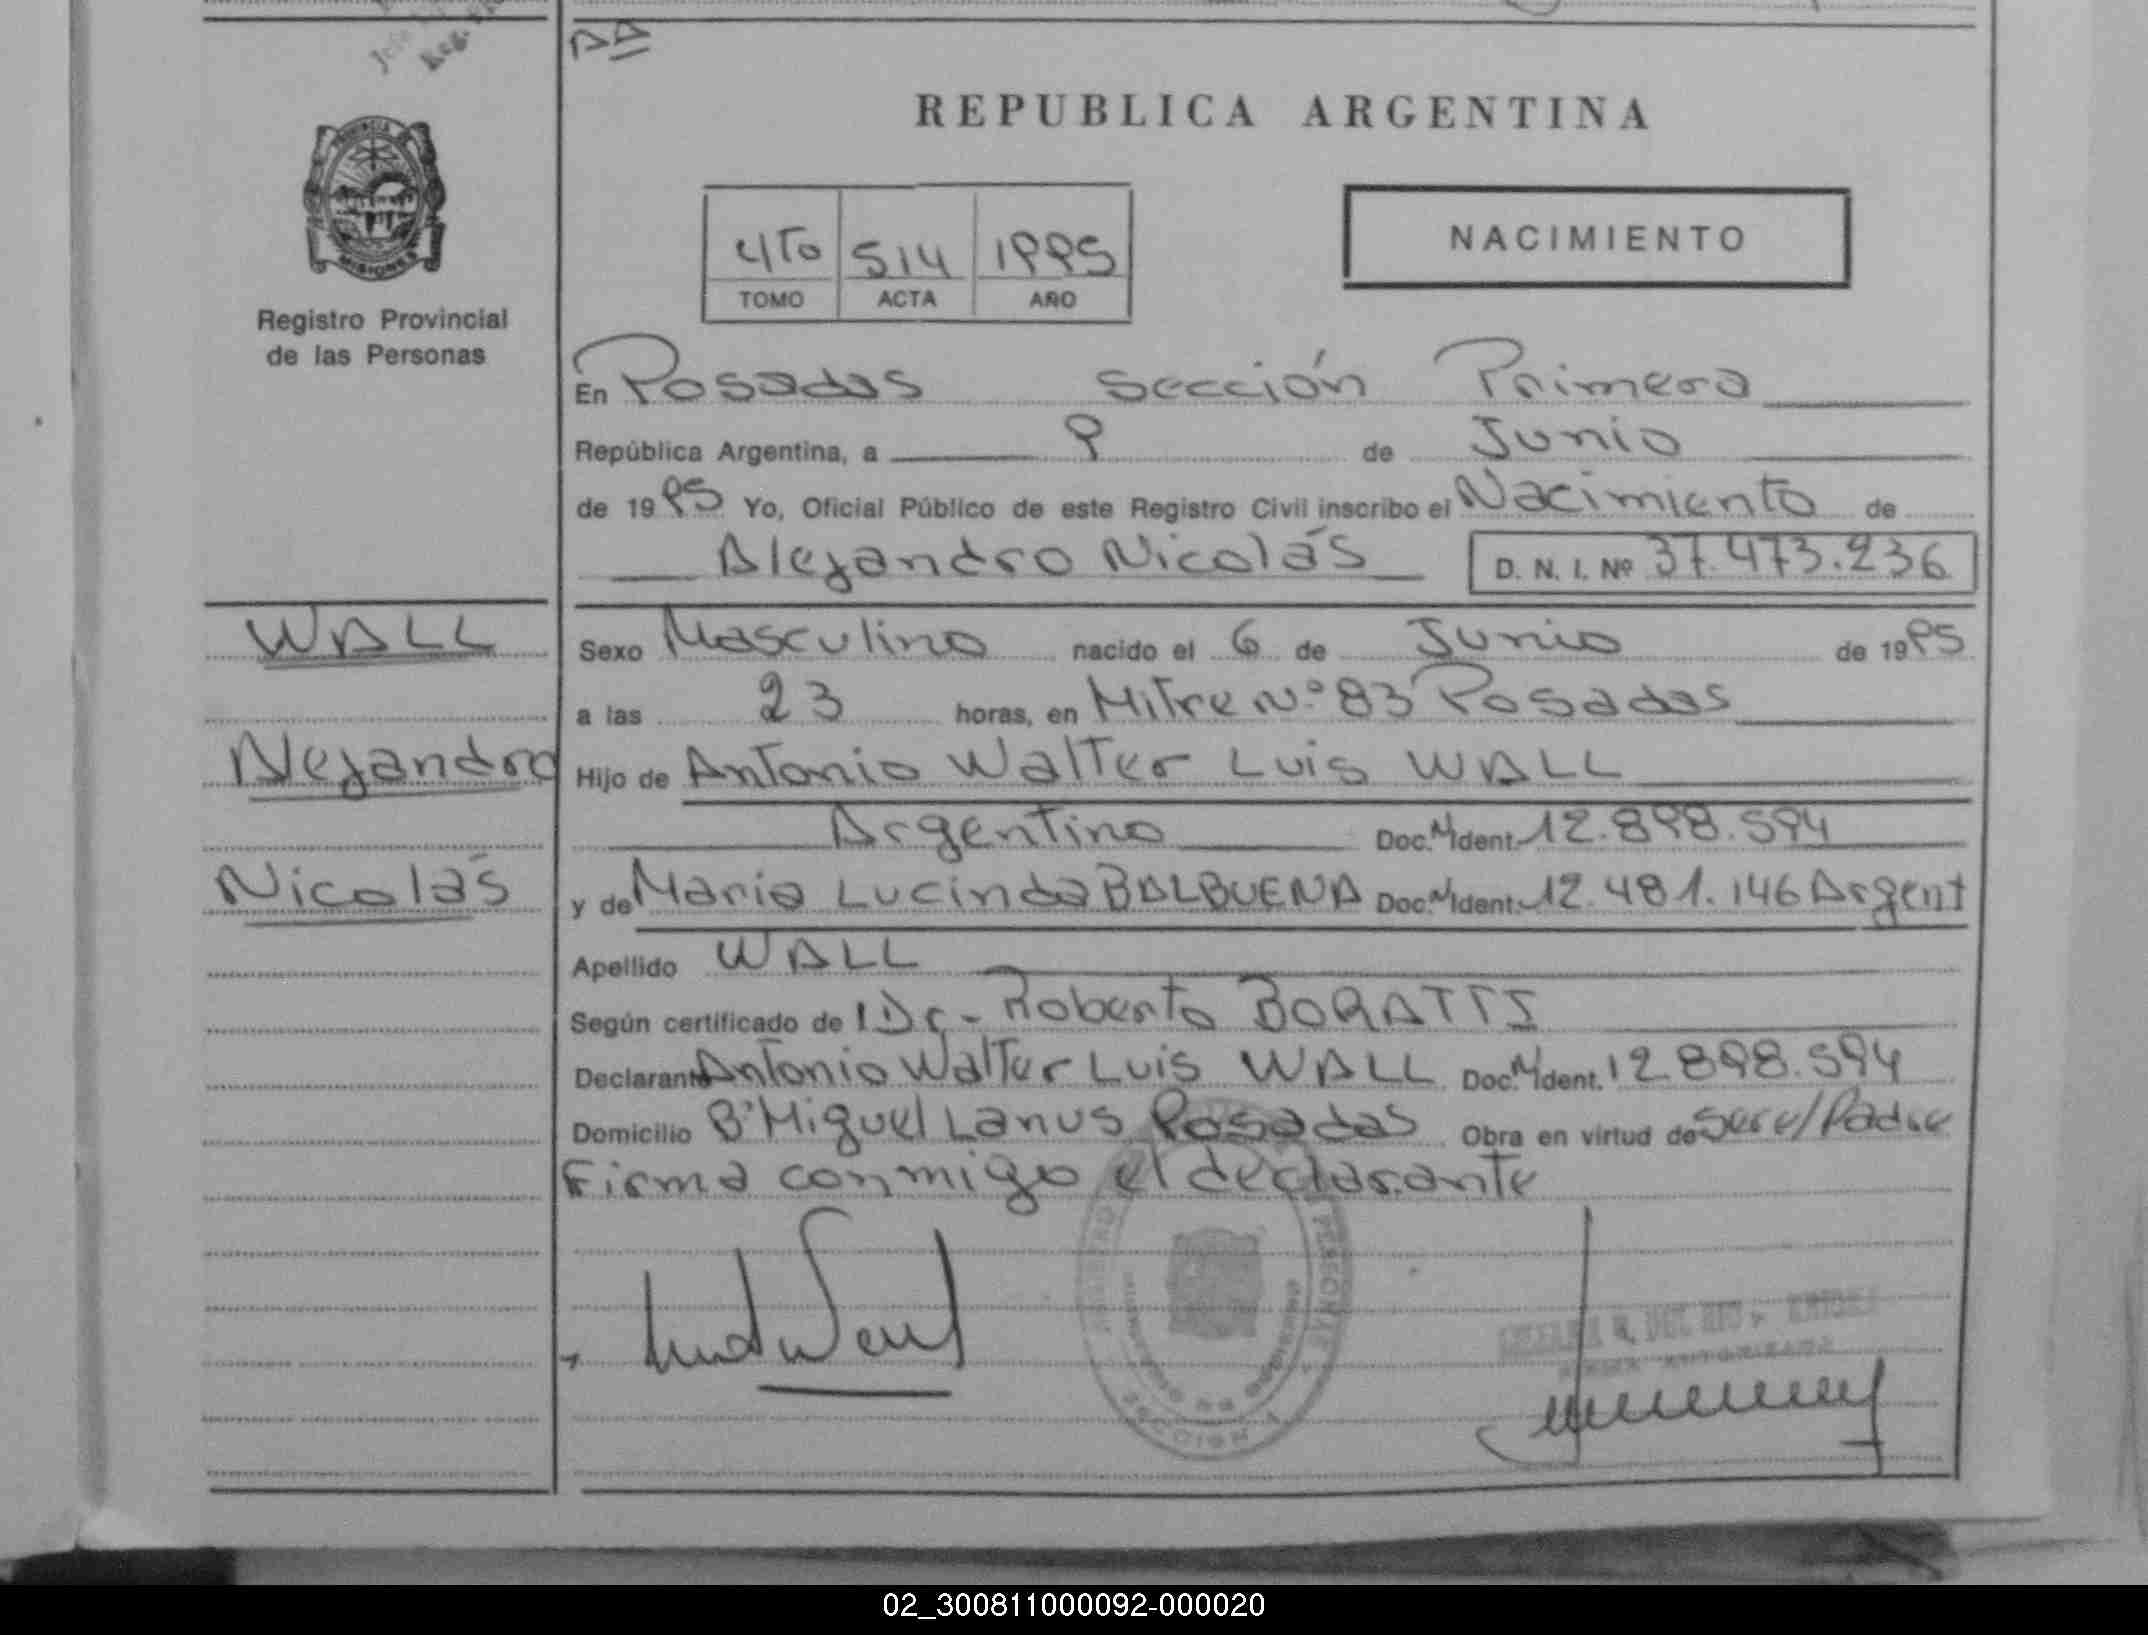 REPUBLICA ARGENTINA
PROVINCIA
MISIONES
Registro Provincial
de las Personas
4TO 514 1995
TOMO ACTA AÑO
NACIMIENTO
En Posadas Sección Primera
República Argentina, a 9 de Junio
de 1995 Yo, Oficial Público de este Registro Civil inscribo el Nacimiento de
Alejandro Nicolás D. N. I. Nº 37.473.236
WALL
Alejandro
Nicolás
Sexo Masculino nacido el 6 de Junio de 1995
a las 23 horas, en Mitre N° 83 Posadas
Hijo de Antonio Walter Luis WALL
Argentino Doc. N Ident. 12.898.594
y de Maria Lucinda BALBUENA Doc. N Ident. 12.481.146 Argent
Apellido WALL
Según certificado de Dr - Roberto BORATTI
Declarante Antonio Walter Luis WALL Doc. N Ident. 12.898.594
Domicilio B° Miguel Lanus Posadas Obra en virtud de ser el Padre
Firma conmigo el declarante
SECCION 1
02_300811000092-000020